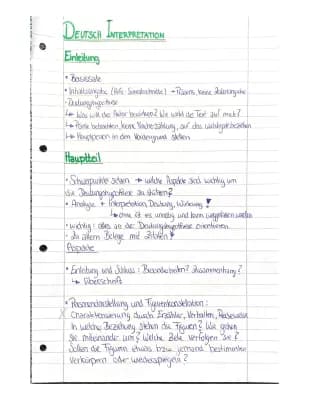 DEUTSCH INTERPRETATION
Einleitung
• Basissatz
• Inhaltsangabe (kurze → Präsens, keine
• Deutungshypothese
↳ Was will der Autor bewirken? Wie wirkt der Text auf mich?
↳ Texte betrachten, keine Nacherzählung, auf das wichtigste beziehen
↳ Hauptperson in den Vordergrund stellen
Hauptteil
• Schwerpunkte setzen → welche Aspekte sind wichtig um
die Deutungshypothese zu stützen?
• Analyse + Interpretation, Deutung, Wirkung!
↳ ohne ist es unnötig und kann weggelassen werden
• wichtig: alles an der Deutungshypothese orientieren
• zu allem Belege mit Zitaten!
Aspekte
• Einleitung und Schluss: Besonderheiten? Zusammenhang?
↳ Überschrift
• Personendarstellung und Figurenkonstellation:
Charakterisierung durch Erzähler, Verhalten, Redeweise
In welche Beziehung stehen die Figuren? Wie gehen
sie miteinander um? Welche Ziele verfolgen sie?
Sollen die Figuren etwas bzw. jemand bestimmten
verkörpern oder wiederspiegeln?